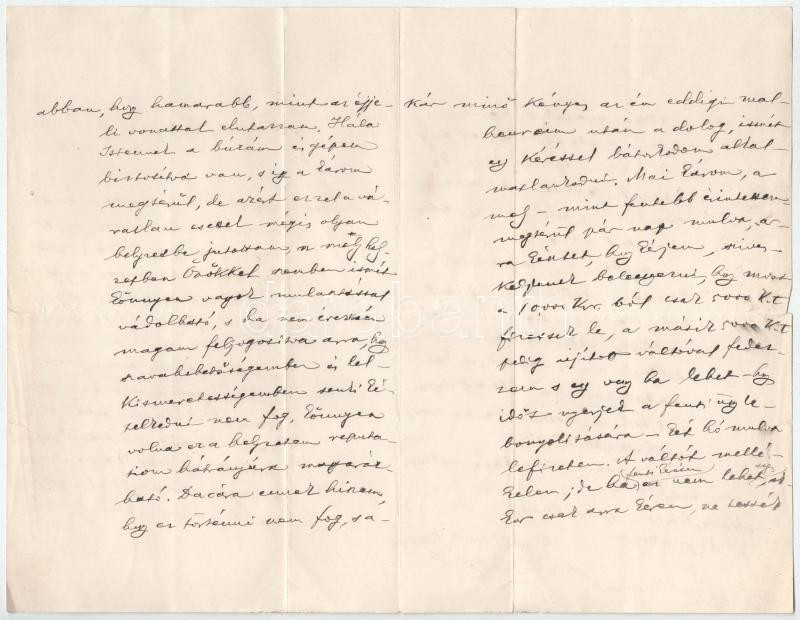 abban, hogy hamarabb, mint az éjje-
li vonattal elutazzam. Hála
Istennek a búzám és gépem
biztosítva van, s így a károm
megtérül, de azért ezzel a vá-
ratlan esettel mégis olyan
helyzetbe jutottam, a mely hely-
zetben Önökkel szemben ismét
könnyen vagyok mulasztással
vádolható, s ha nem érezném
magam feljogosítva arra, hogy
szavahihetőségemben és lel-
kismeretességemben senki ké-
telkedni nem fog, könnyen
volna ez a helyzetem reputa-
tiom hátrányára magyaráz-
ható. Dacára ennek hiszem,
hogy ez történni nem fog, s a-
kár minő kényes az én eddigi mal-
heureim után a dolog, ismét
egy kéréssel bátorkodom alkal-
matlankodni. Mai károm, a
mely – mint fentebb érintettem –
megtérül pár nap mulva, ar-
ra késztet, hogy kérjem, szives-
kedjenek beleegyezni, hogy most
a 10000 Kr. ból csak 5000 K.t
fizessek le, a másik 5000 K.t
pedig újított váltóval fedez-
zem s egy vagy ha lehet – hogy
időt nyerjek a fenti ügy le-
bonyolítására – két hó mulva
lefizetem. A váltót mellé-
kelem; de ha ez nem lehet, ak-
kor csak arra kérem, ne tessék
fenti kérésem